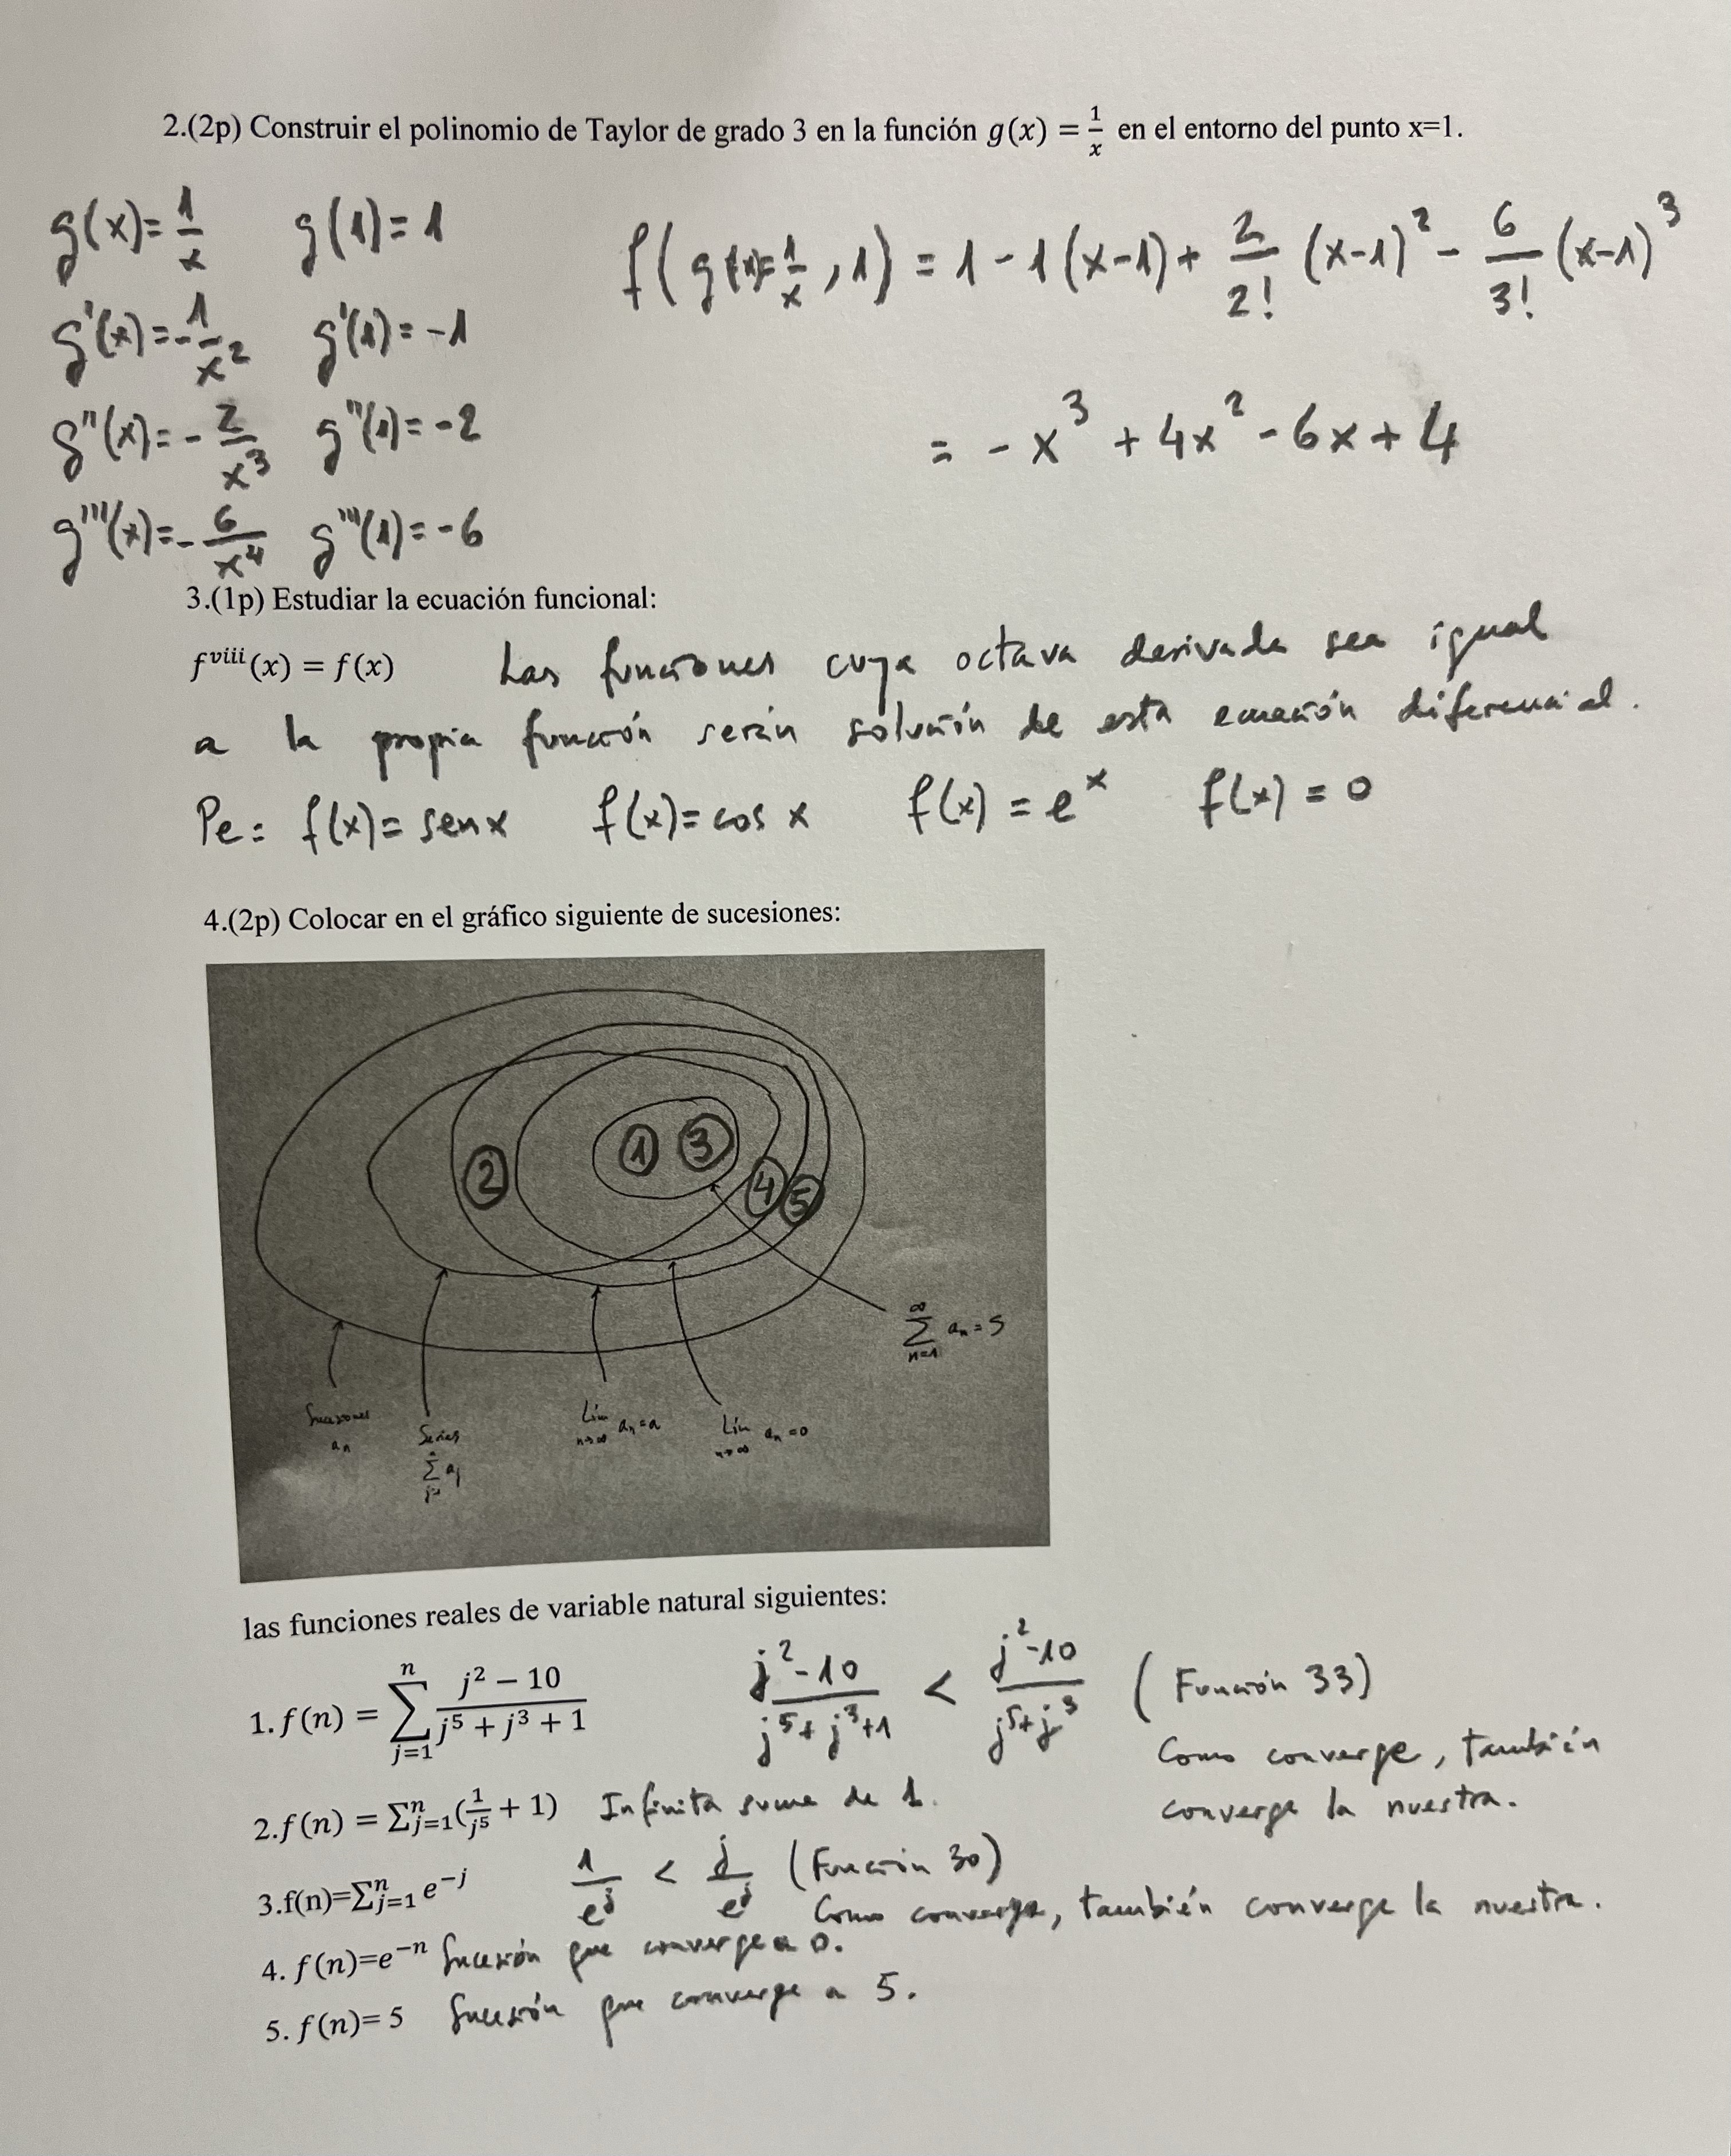 2.(2p) Construir el polinomio de Taylor de grado 3 en la función g(x) = 1/x en el entorno del punto x=1.
g(x)= 1/x g(1)= 1 f( g(x)= 1/x , 1) = 1 - 1(x-1) + 2/2! (x-1)² - 6/3! (x-1)³
g'(x)= -1/x² g'(1)= -1
g''(x)= - 2/x³ g''(1)= -2 = - x³ + 4x² - 6x + 4
g'''(x)= - 6/x⁴ g'''(1)= -6
3.(1p) Estudiar la ecuación funcional:
f^viii(x) = f(x) Las funciones cuya octava derivada sea igual
a la propia función serán solución de esta ecuación diferencial.
Pe: f(x)= sen x f(x)= cos x f(x) = e^x f(x) = 0
4.(2p) Colocar en el gráfico siguiente de sucesiones:
2 1 3 4 5
∞∑n=1 an = S
Sucesiones an
Series n∑j= aj
Lím n→∞ an = a
Lím n→∞ an = 0
las funciones reales de variable natural siguientes:
1. f(n) = n∑j=1 (j² − 10)/(j⁵ + j³ + 1) (j²-10)/(j⁵+j³+1) < (j²-10)/(j⁵+j³) (Función 33)
Como converge, también
converge la nuestra.
2.f(n) = ∑ⁿj=1(1/j⁵ + 1) Infinita suma de 1.
3.f(n)=∑ⁿj=1 e^−j 1/e^j < j/e^j (Función 30)
Como converge, también converge la nuestra.
4. f(n)=e^−n Sucesión que converge a 0.
5. f(n)= 5 Sucesión que converge a 5.